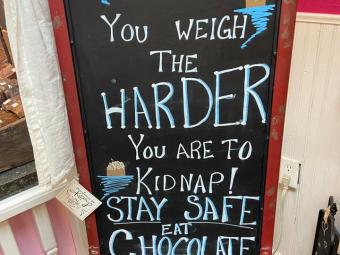 You WEIGH
THE
HARDER
You ARE TO
KIDNAP!
STAY SAFE
EAT
CHOCOLATE